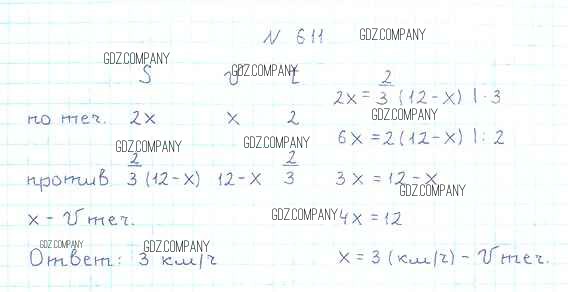 N 611 GDZ.COMPANY
GDZ.COMPANY
S v t
GDZ.COMPANY
2x = 2/3 (12-x) | · 3
по теч. 2x x 2
GDZ.COMPANY
6x = 2(12-x) | : 2
GDZ.COMPANY GDZ.COMPANY
против 2/3 (12-x) 12-x 2/3
3x = 12-x
GDZ.COMPANY
x - v теч.
GDZ.COMPANY
4x = 12
GDZ.COMPANY GDZ.COMPANY
Ответ: 3 км/ч
x = 3 (км/ч) - v теч.